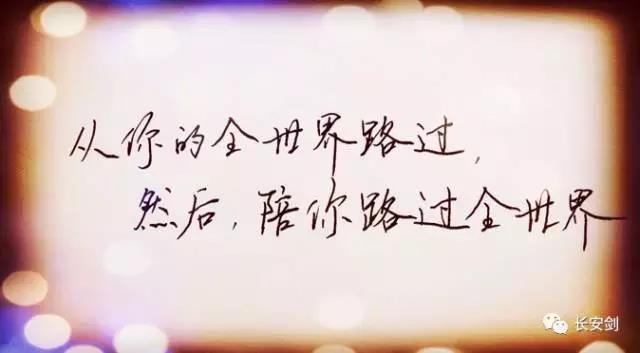 从你的全世界路过,
然后,陪你路过全世界
长安剑